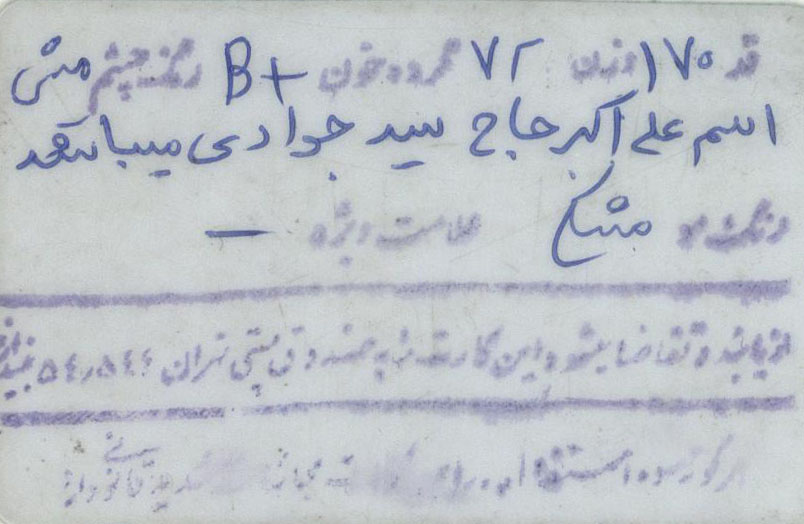 قد ۱۷۰ وزن ۷۲ گروه خون B+ رنگ چشم مشی
اسم علی اکبر حاج سید جوادی میباشد
رنگ مو مشکی علامت ویژه —
از یابنده تقاضا میشود این کارت را به صندوق پستی تهران ۵۴٫۵۴۴
هرگونه استفاده